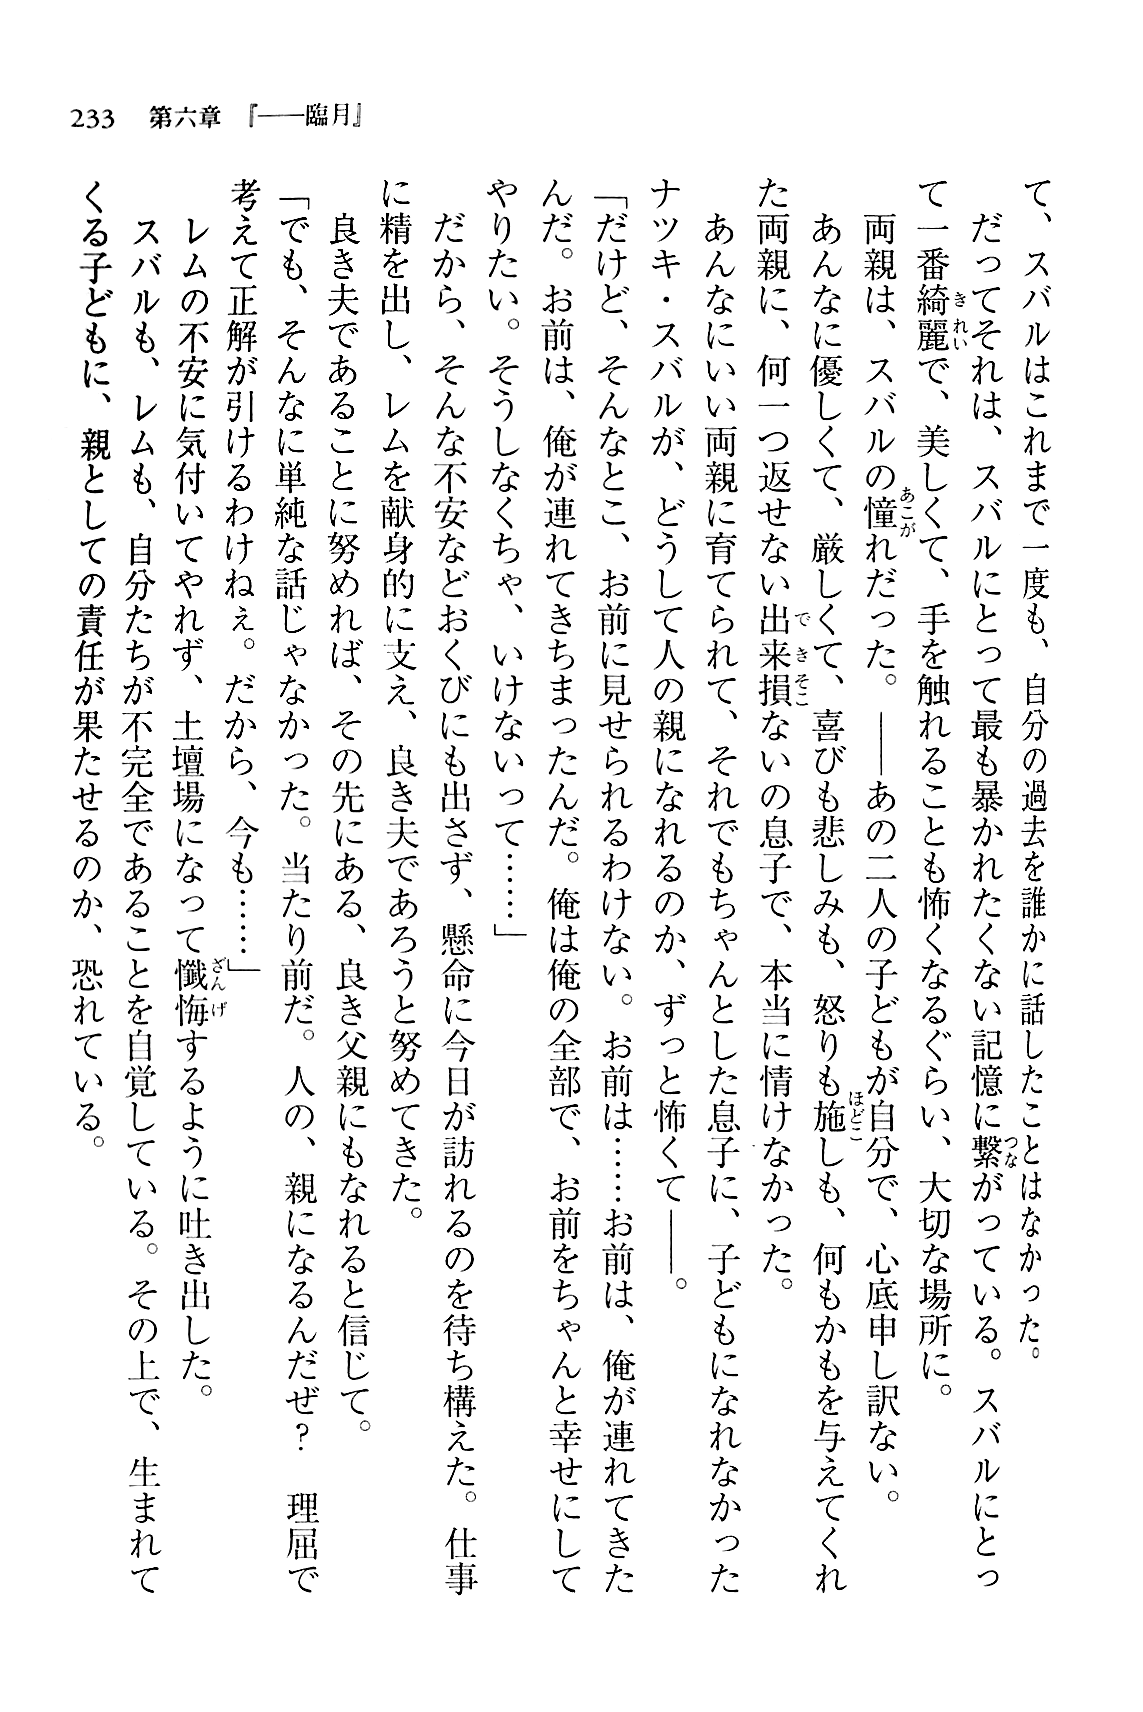 233　第六章　『――臨月』
て、スバルはこれまで一度も、自分の過去を誰かに話したことはなかった。
　だってそれは、スバルにとって最も暴かれたくない記憶に繋がっている。スバルにとっ
て一番綺麗で、美しくて、手を触れることも怖くなるぐらい、大切な場所に。
　両親は、スバルの憧れだった。――あの二人の子どもが自分で、心底申し訳ない。
　あんなに優しくて、厳しくて、喜びも悲しみも、怒りも施しも、何もかもを与えてくれ
た両親に、何一つ返せない出来損ないの息子で、本当に情けなかった。
　あんなにいい両親に育てられて、それでもちゃんとした息子に、子どもになれなかった
ナツキ・スバルが、どうして人の親になれるのか、ずっと怖くて――。
「だけど、そんなとこ、お前に見せられるわけない。お前は……お前は、俺が連れてきた
んだ。お前は、俺が連れてきちまったんだ。俺は俺の全部で、お前をちゃんと幸せにして
やりたい。そうしなくちゃ、いけないって……」
　だから、そんな不安などおくびにも出さず、懸命に今日が訪れるのを待ち構えた。仕事
に精を出し、レムを献身的に支え、良き夫であろうと努めてきた。
　良き夫であることに努めれば、その先にある、良き父親にもなれると信じて。
「でも、そんなに単純な話じゃなかった。当たり前だ。人の、親になるんだぜ？　理屈で
考えて正解が引けるわけねぇ。だから、今も……」
　レムの不安に気付いてやれず、土壇場になって懺悔するように吐き出した。
　スバルも、レムも、自分たちが不完全であることを自覚している。その上で、生まれて
くる子どもに、親としての責任が果たせるのか、恐れている。